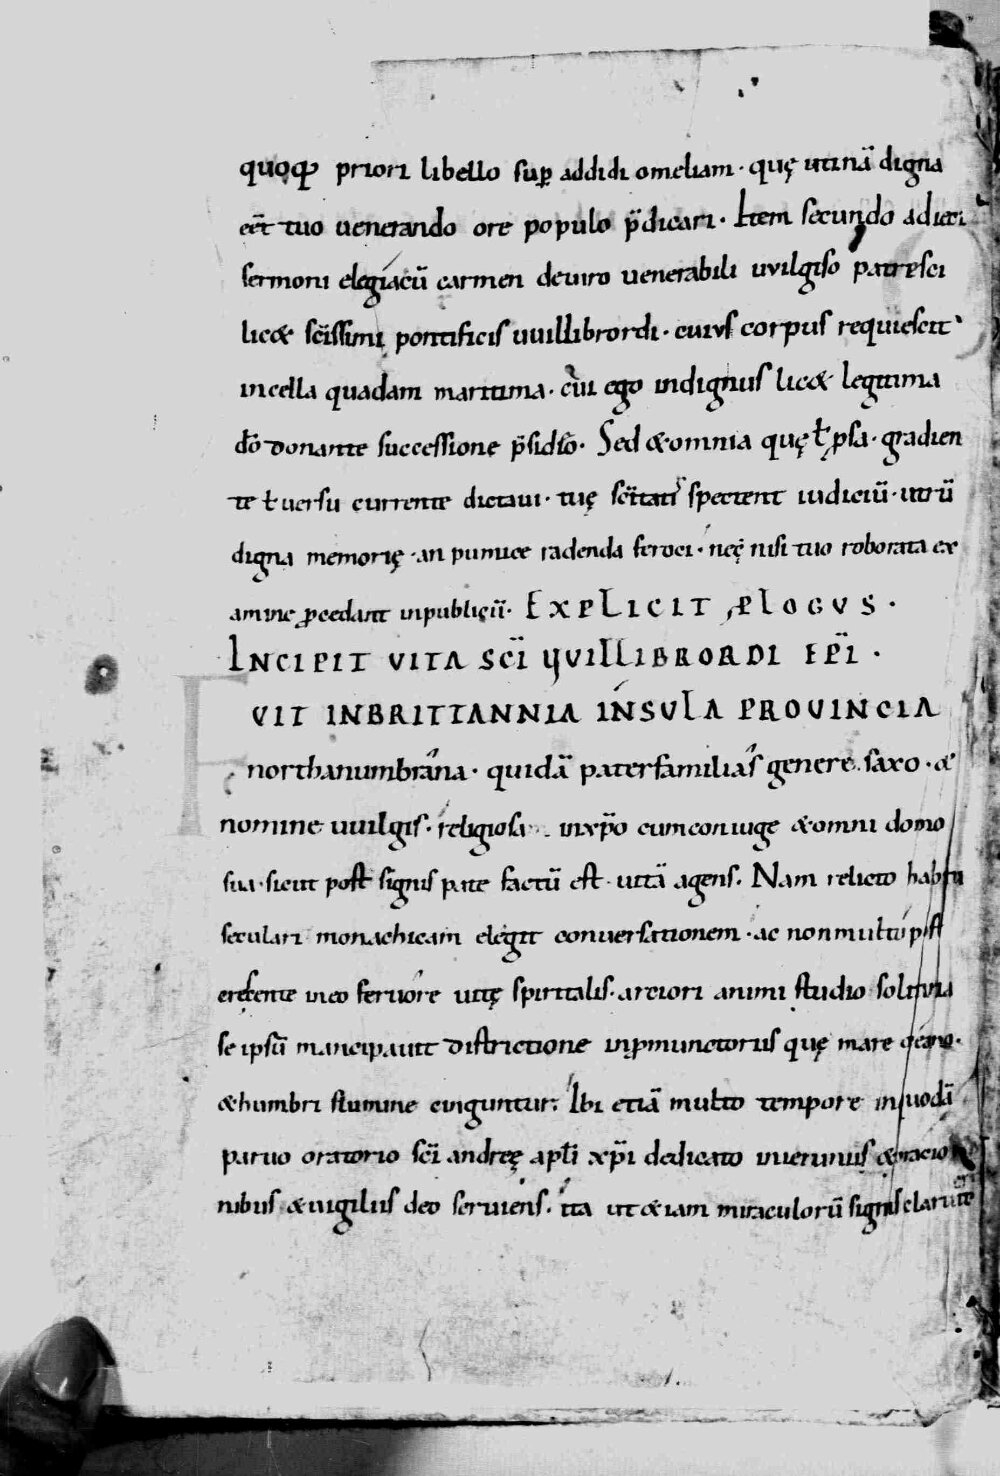 quoq; priori libello sup̱ addidi omeliam · quę utinā digna
eēt tuo uenerando ore populo p̄dicari · Item secundo adieci
sermoni elegiacū carmen deuiro uenerabili uuilgiso patresci
lic& sc̄issimi pontificis uuillibrordi · cuius corpus requiescit
incella quadam maritima · cui ego indignus lic& legitima
dō donante successione p̄sideo · Sed &omnia quę ł ꝓsa · gradien
te ł uersu currente dictaui · tuę sc̄itati spectent iudiciū · utrū
digna memorię · an pumice radenda feroci · nec nisi tuo roborata ex
amine ꝓcedant inpublicū · EXPLICIT PLOGUS ·
INCIPIT VITA SC̄I UUILLIBRORDI EP̄I ·
FUIT INBRITTANNIA INSULA PROUINCIA
northanumbrana · quidā paterfamilias genere saxo · &
nomine uuilgis · religiosa inxp̄o cumconiuge &omni domo
sua · sicut post signis pate factū est · uitā agens. Nam relicto habitu
seculari monachicam elegit conuersationem · ac nonmultū post
crescente ineo feruore uitę spiritalis · arciori animi studio solitaria
se ipsū mancipauit districtione inꝓmunctoriis quę mare oceano ·
&humbri flumine cinguntur. Ibi etiā multo tempore inquodā
paruo oratorio sc̄i andreę apłi xp̄i dedicato ieiuniis &oracio
nibus &uigiliis deo seruiens. ita ut &iam miraculorū signis clarus